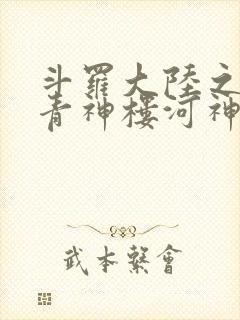 斗羅大陸之
青神樓河神
武本繫會